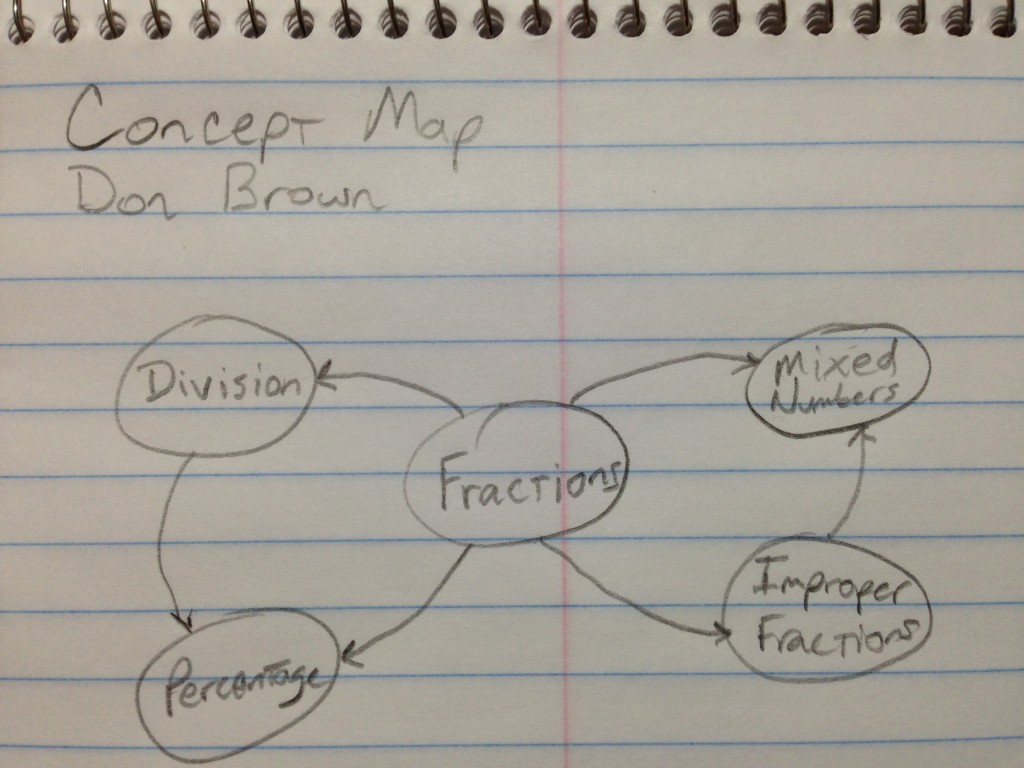 Concept Map
Don Brown
Division
Mixed
Numbers
Fractions
Improper
Fractions
Percentage